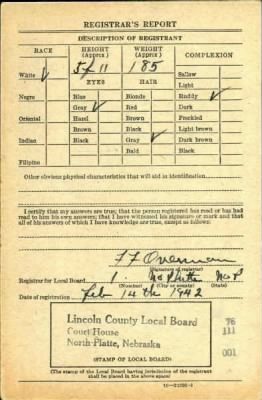 REGISTRAR'S REPORT
DESCRIPTION OF REGISTRANT
RACE HEIGHT (Approx.) WEIGHT (Approx.) COMPLEXION
White ✓ 5 ft 11 185 Sallow
EYES HAIR Light
Negro Blue Blonde Ruddy ✓
Gray ✓ Red Dark
Oriental Hazel Brown Freckled
Brown Gray ✓ Light brown
Indian Black Black Dark brown
Bald Black
Filipino
Other obvious physical characteristics that will aid in identification
I certify that my answers are true; that the person registered has read or has had
read to him his own answers; that I have witnessed his signature or mark and that
all of his answers of which I have knowledge are true, except as follows:
Overman
(Signature of registrar)
Registrar for Local Board 1 No Platte
(Number) (City or county) (State)
Date of registration Feb 14th 1942
Lincoln County Local Board 76
Court House 111
North Platte, Nebraska 001
(STAMP OF LOCAL BOARD)
(The stamp of the Local Board having jurisdiction of the registrant
shall be placed in the above space)